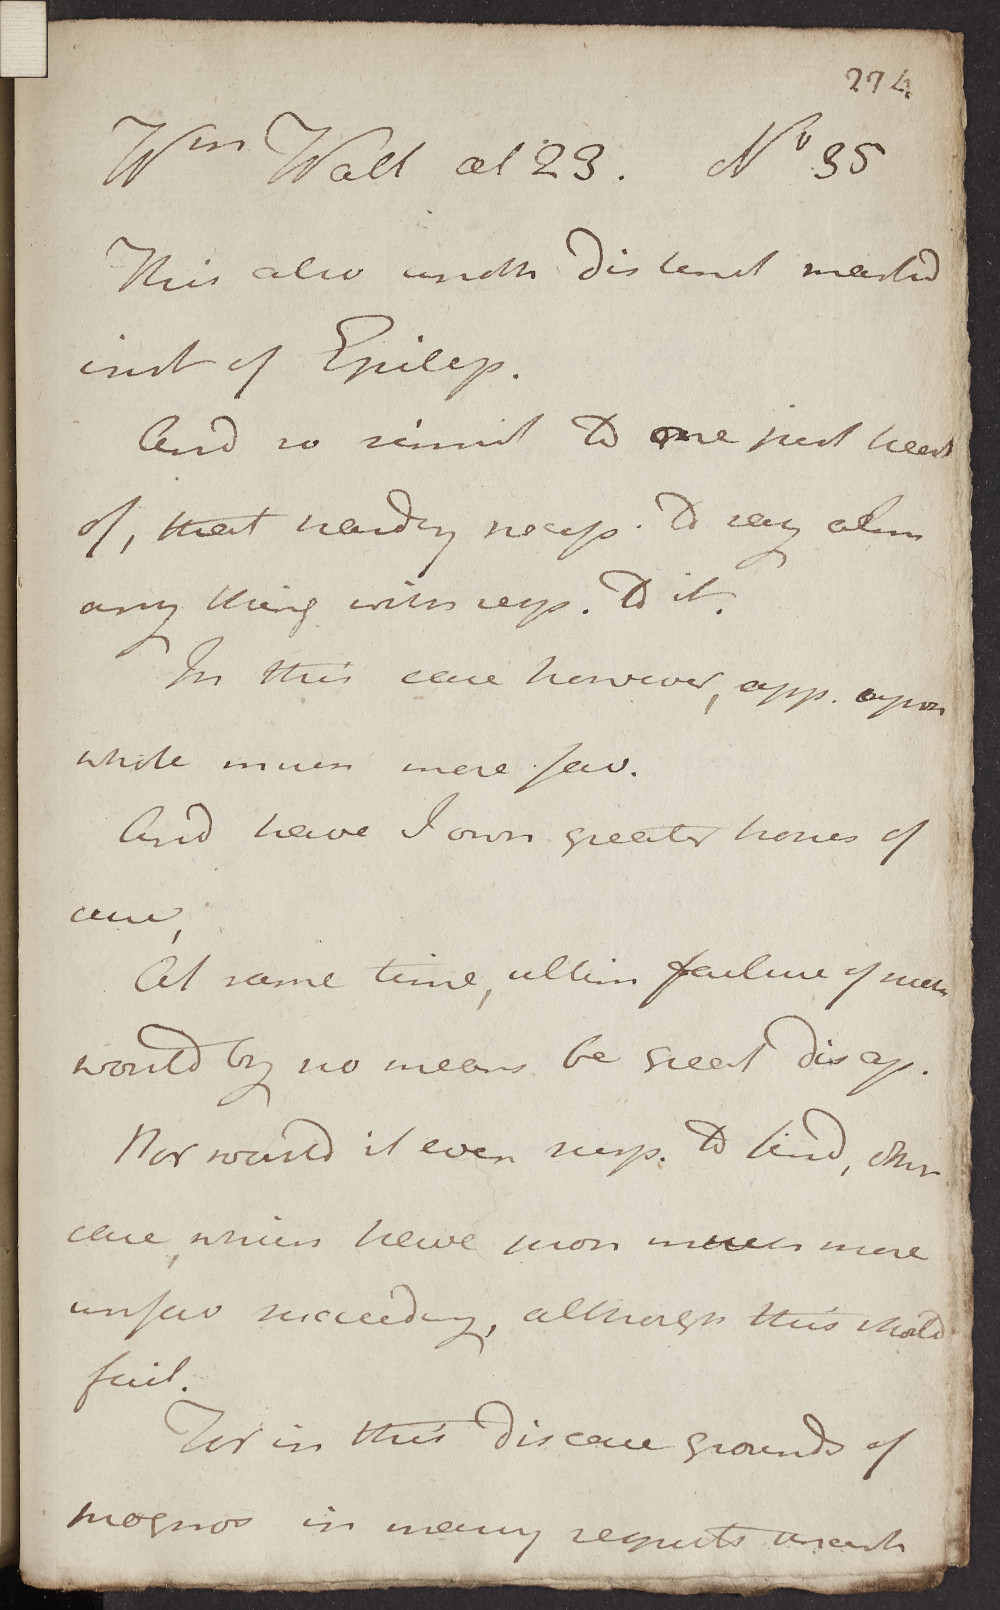 274.
Wm Watt at 23. No 35
This also anoth distinct markd
inst of Epilep.
And so simil to one just heard
of, that hardly necess. to say alm
any thing with resp. to it.
In this case however, app. upon
whole much more fav.
And have I own greater hopes of
cure,
At same time, ultim failure of means
would by no means be great disap.
Nor would it even surp. to find, other
case, which have pron much more
unfav succeeding, although this should
fail.
For in this disease grounds of
prognos in many respects uncert